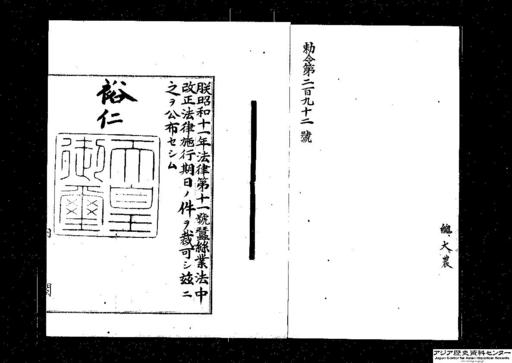 勅令第二百九十二號
總、大農
朕昭和十一年法律第十一號蠶絲業法中
改正法律施行期日ノ件ヲ裁可シ茲ニ
之ヲ公布セシム
裕仁
天皇
御璽
内閣
アジア歴史資料センター
Japan Center for Asian Historical Records